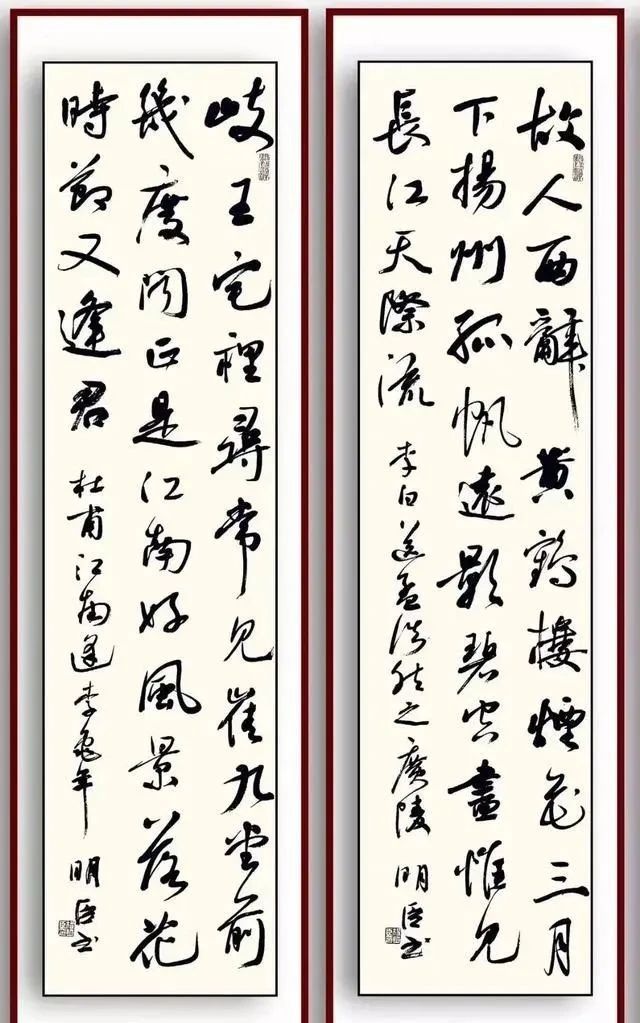 故人西辭黄鶴樓煙花三月
下揚州孤帆遠影碧空盡惟見
長江天際流 李白送孟浩然之廣陵 明臣书
岐王宅裡尋常見崔九堂前
幾度聞正是江南好風景落花
時節又逢君 杜甫江南逢李龜年 明臣书